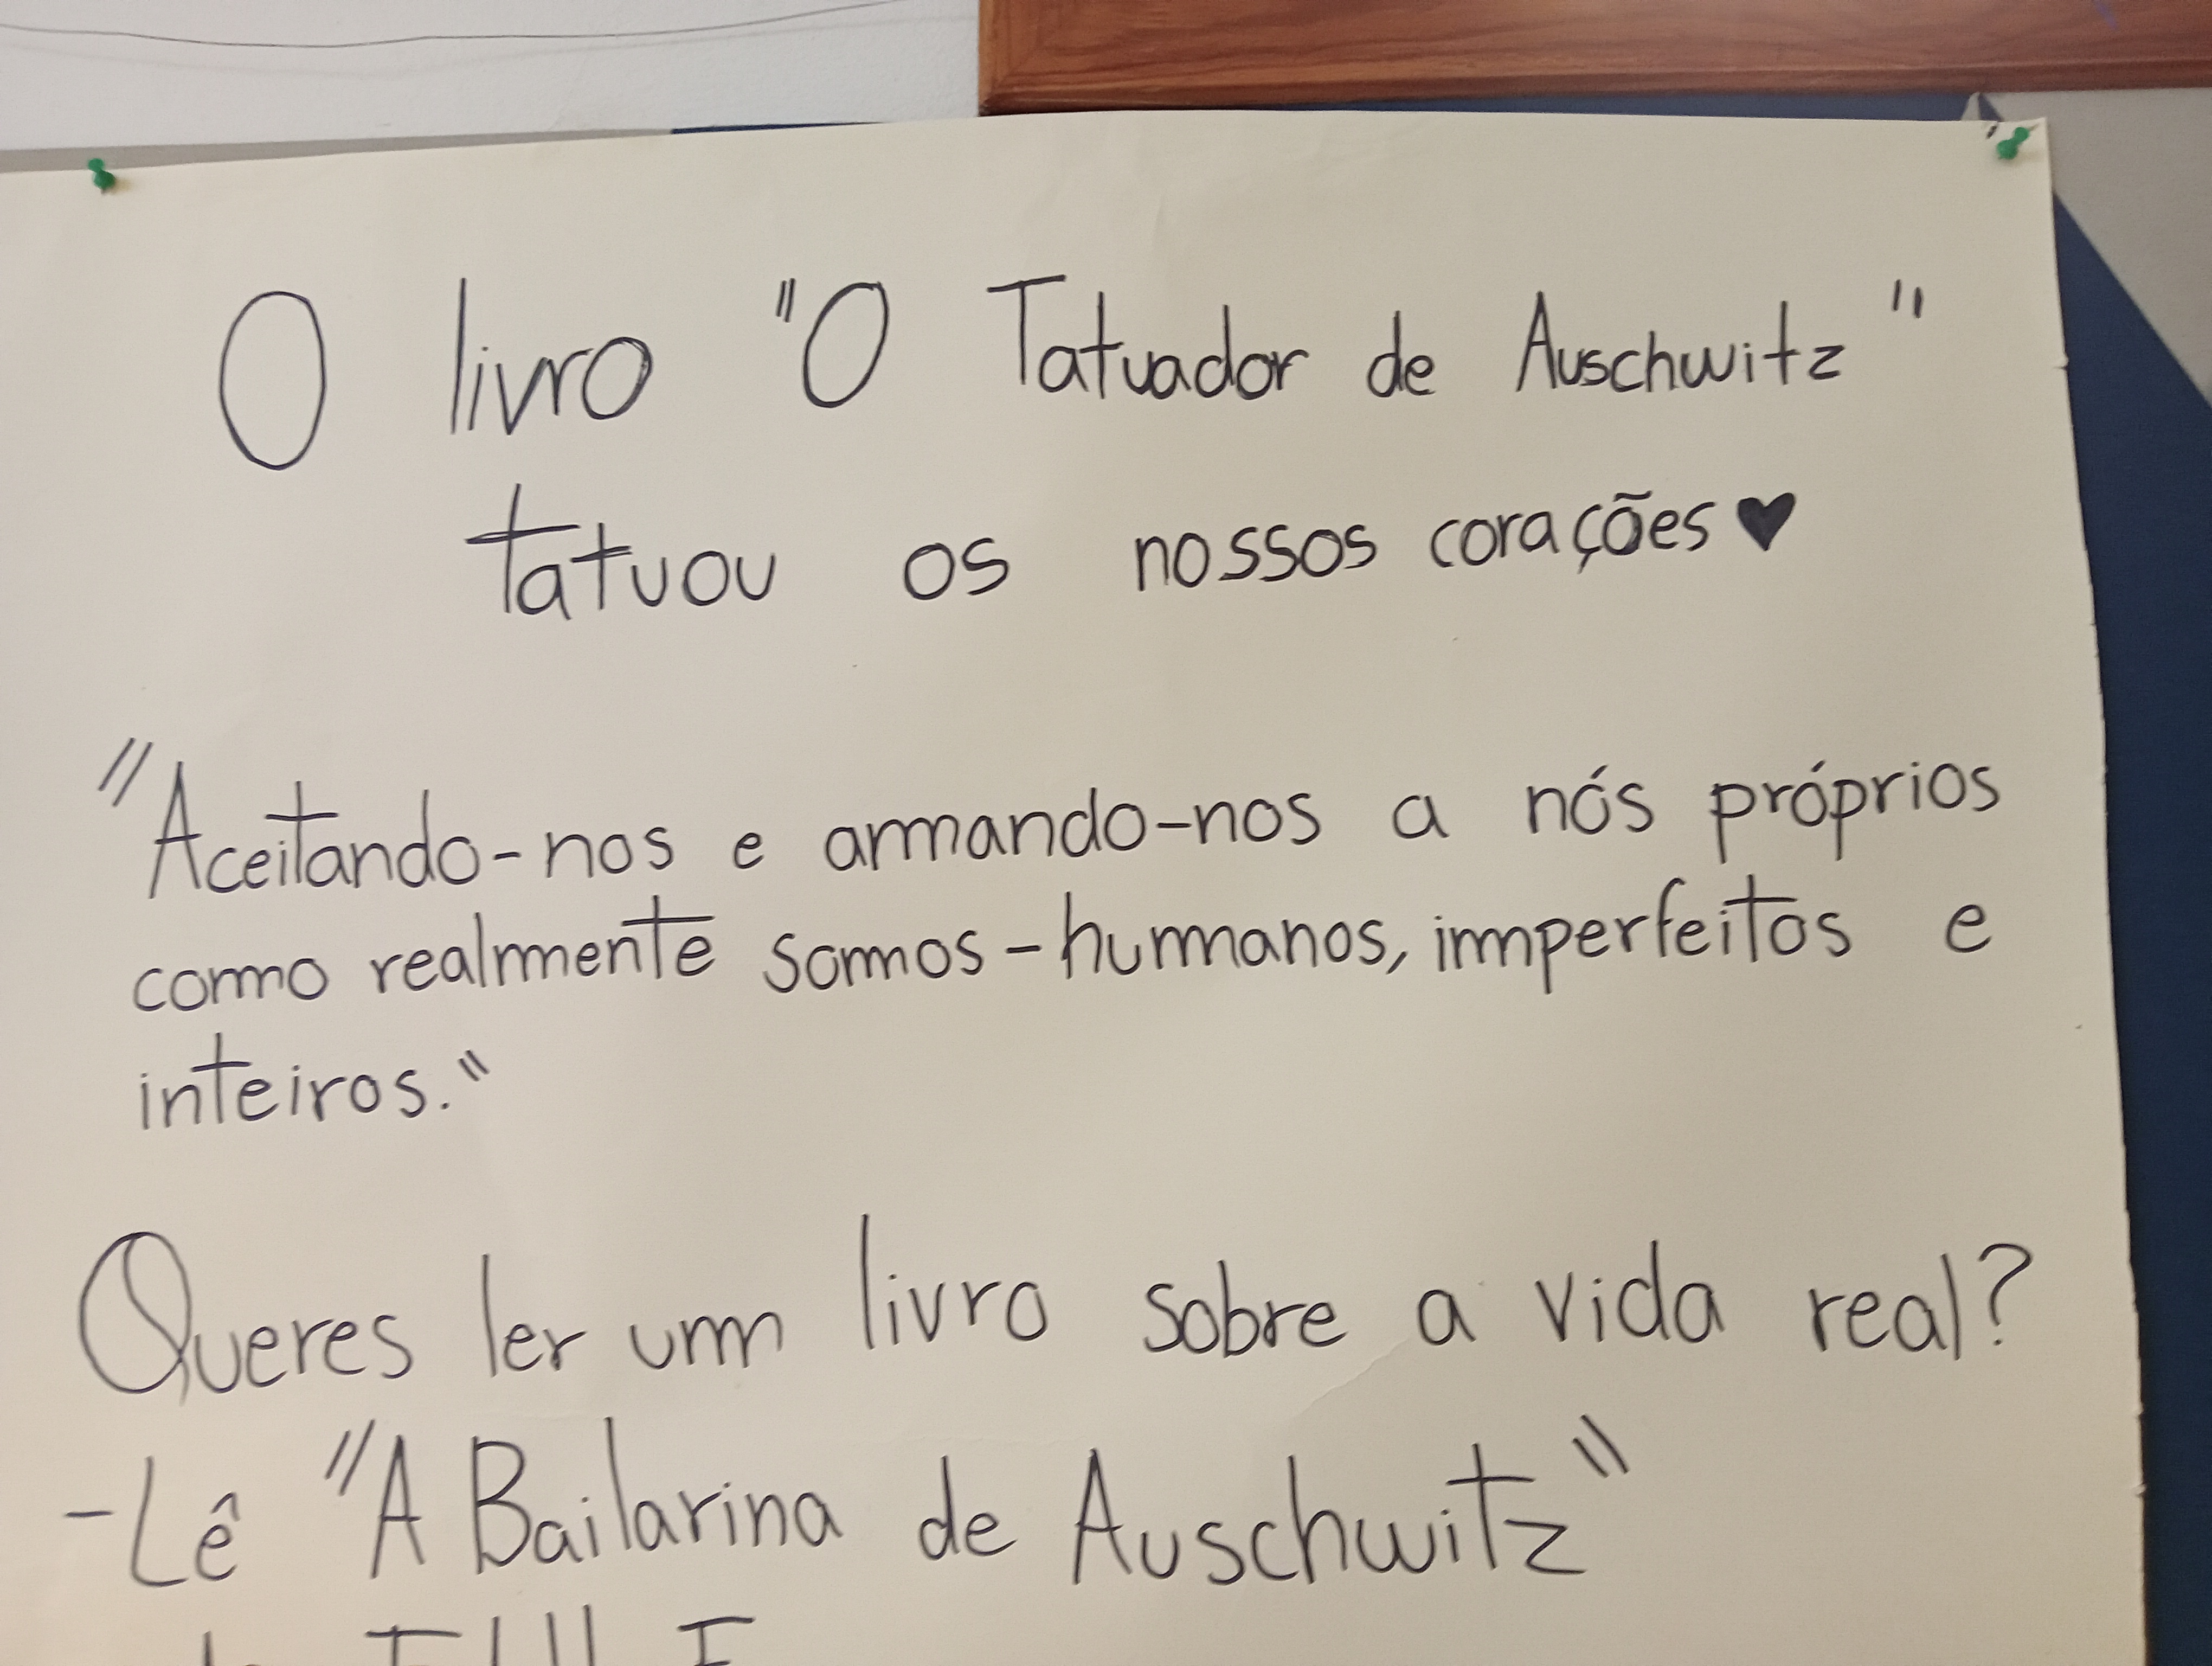 O livro "O Tatuador de Auschwitz"
tatuou os nossos corações ♥
"Aceitando-nos e armando-nos a nós próprios
como realmente somos - humanos, imperfeitos e
inteiros."
Queres ler um livro sobre a vida real?
- Lê "A Bailarina de Auschwitz"